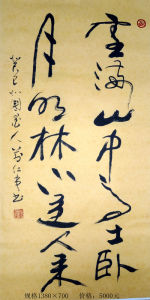 雪满山中高士卧
月明林下美人来
癸巳
规格1380×700 价格:5000元